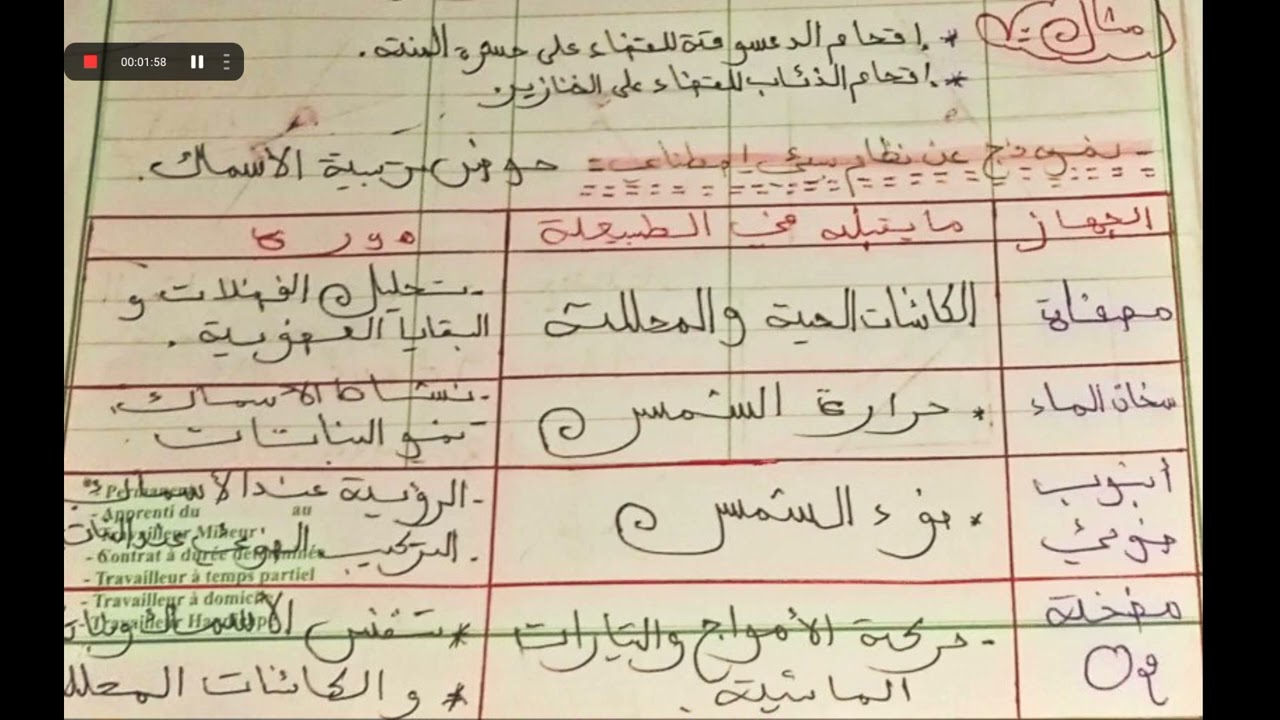 00:01:58
مثال
* إقحام الدعسوقة للقضاء على حشرة المنة.
* إقحام الذئاب للقضاء على الخنازير.
- نموذج عن نظام بيئي إصطناعي: حوض تربية الأسماك.
الجهاز
ما يقابله في الطبيعة
دورها
مصفاة
الكائنات الحية والمحللة
- تحليل الفضلات و
البقايا العضوية.
سخان الماء
* حرارة الشمس
- نشاط الأسماك.
- نمو النباتات
أنبوب
ضوئي
* ضوء الشمس
- الرؤية عند الأسماك
- التركيب الضوئي عند النبات
مضخة
O2
- حركة الأمواج والتيارات
المائية.
* تنفس الأسماك
* و الكائنات المحللة
- Permanent
- Apprenti du au
- Travailleur Mineur
- Contrat à durée déterminée
- Travailleur à temps partiel
- Travailleur à domicile
- Travailleur Handicapé